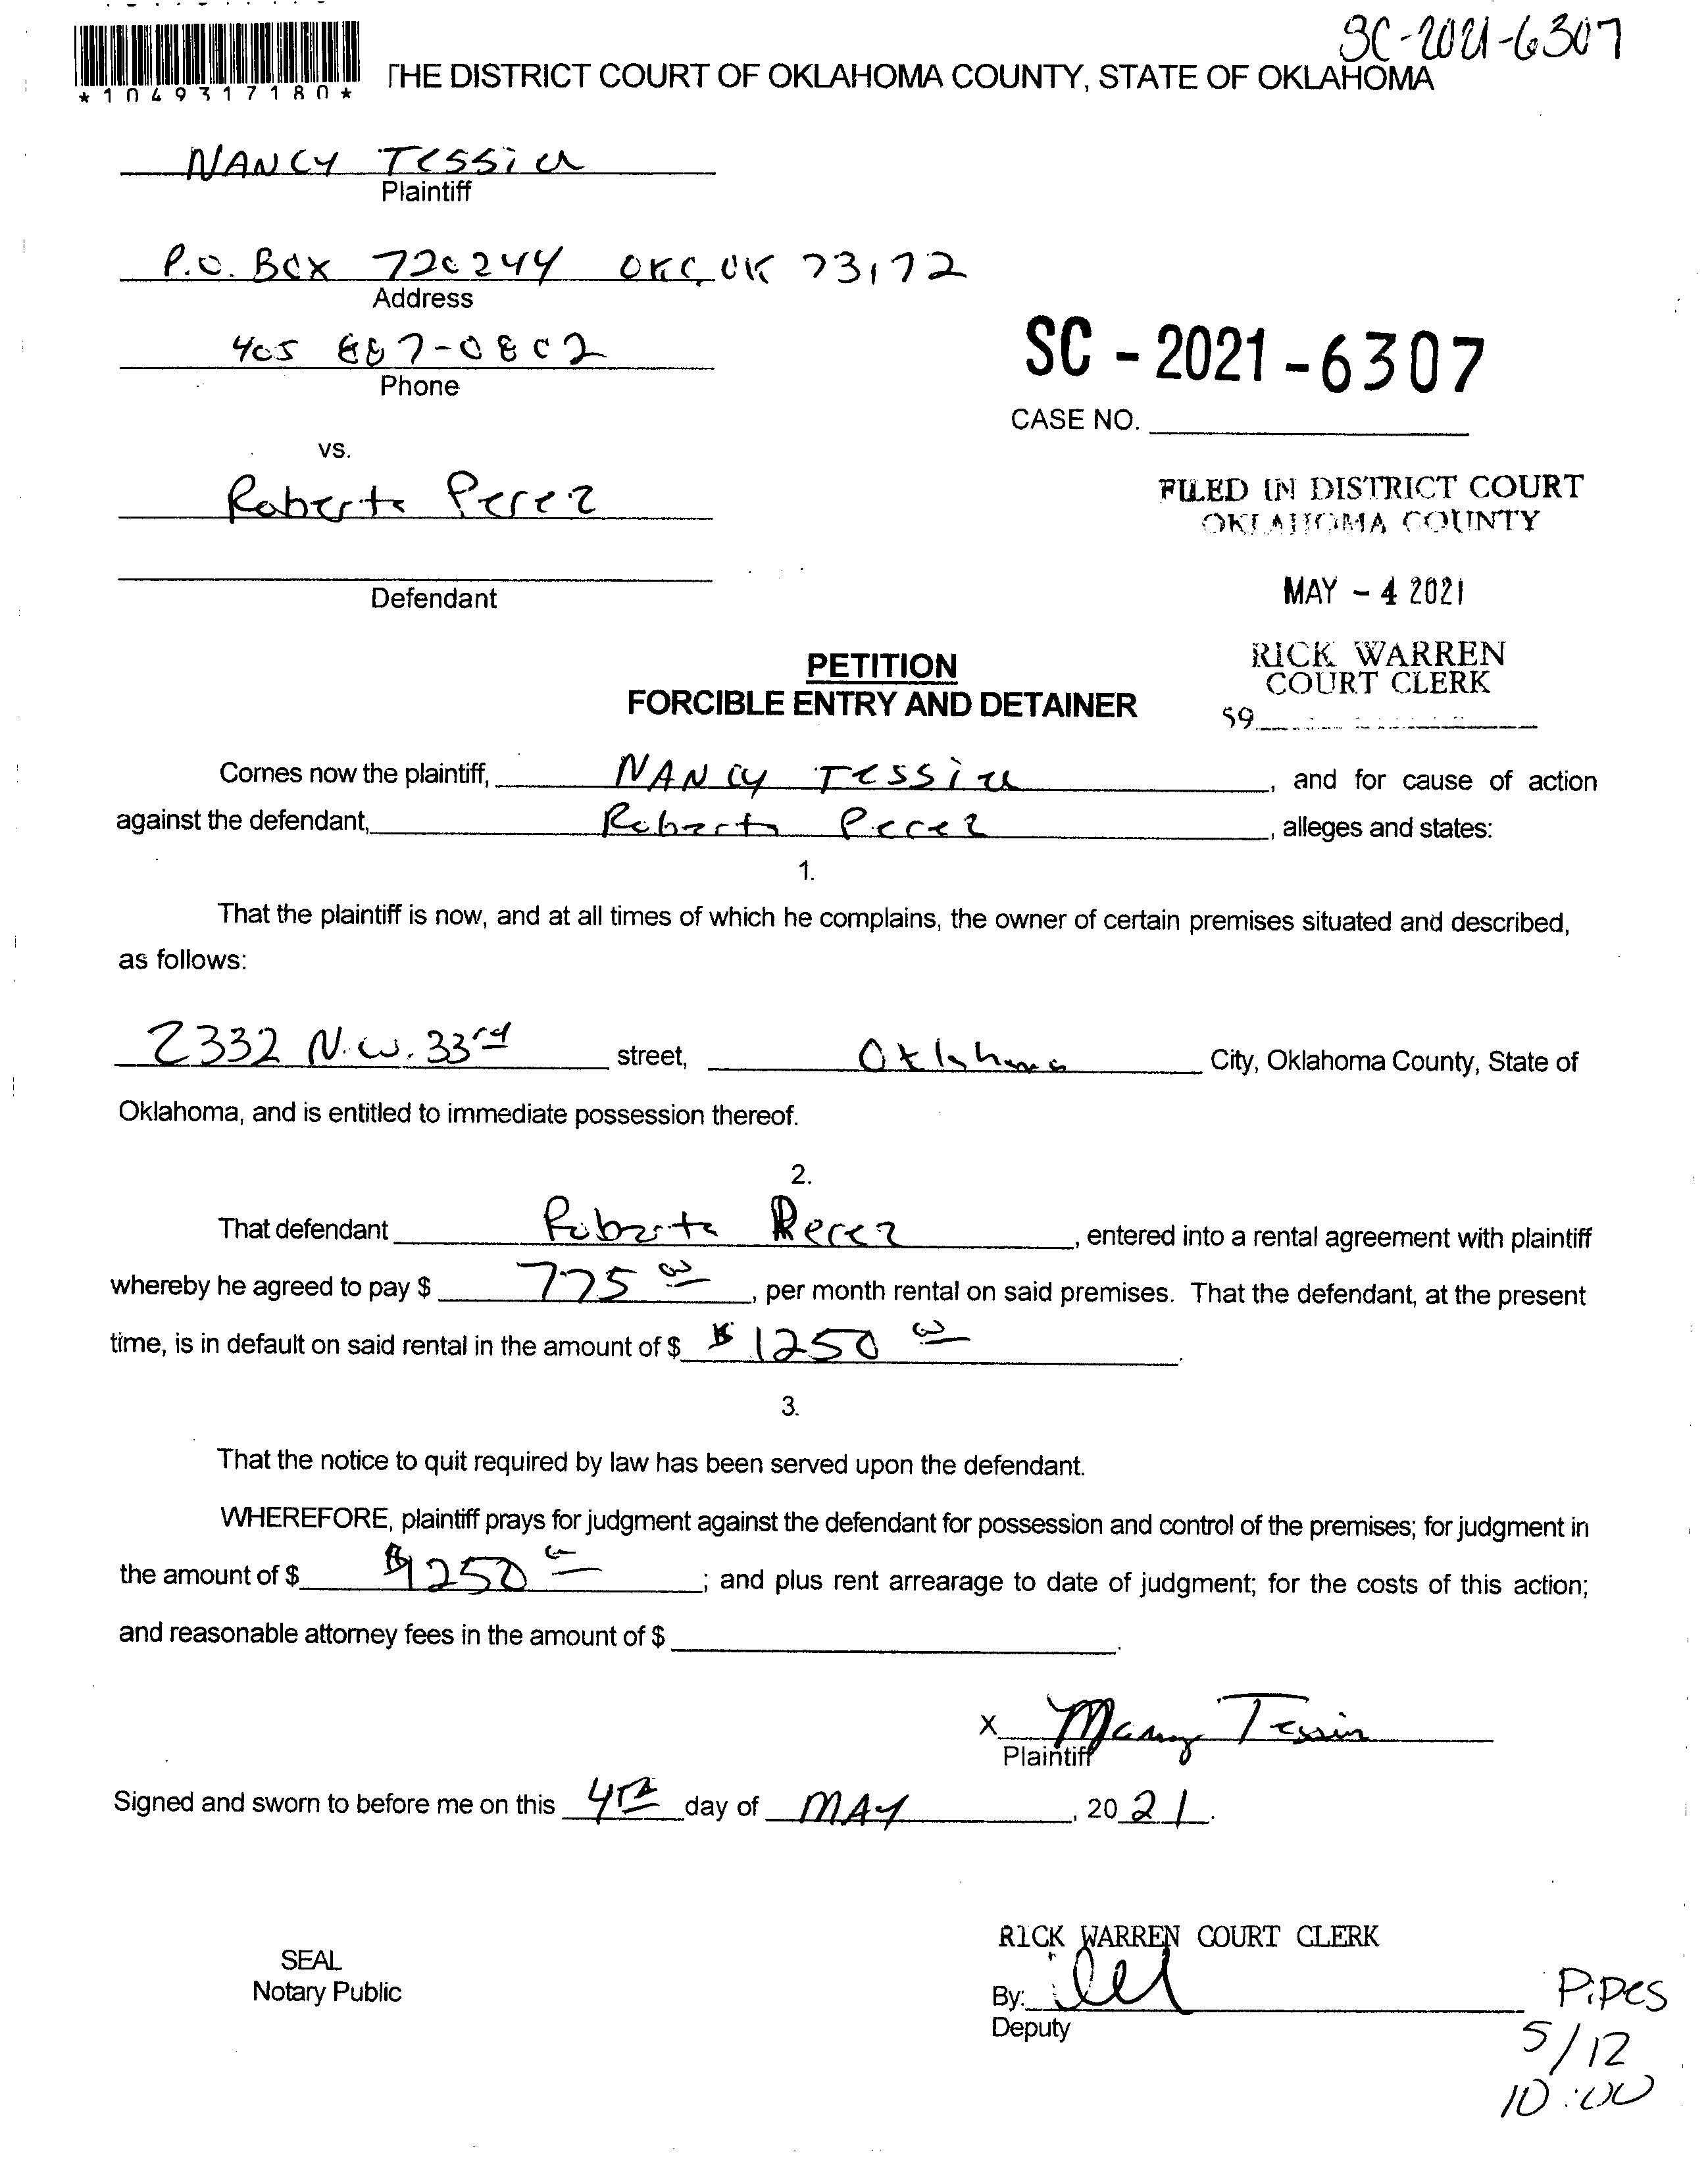 SC-2021-6307
*1049317180*
THE DISTRICT COURT OF OKLAHOMA COUNTY, STATE OF OKLAHOMA
NANCY Tessier
Plaintiff
P.O. Box 720244 OKC, OK 73172
Address
405 887-0802
Phone
SC - 2021 - 6307
CASE NO.
vs.
Roberto Perez
FILED IN DISTRICT COURT
OKLAHOMA COUNTY
Defendant
MAY - 4 2021
RICK WARREN
COURT CLERK
59
PETITION
FORCIBLE ENTRY AND DETAINER
Comes now the plaintiff, NANCY Tessier, and for cause of action
against the defendant, Roberto Perez, alleges and states:
1.
That the plaintiff is now, and at all times of which he complains, the owner of certain premises situated and described,
as follows:
2332 N.W. 33rd street, Oklahoma City, Oklahoma County, State of
Oklahoma, and is entitled to immediate possession thereof.
2.
That defendant Roberto Perez, entered into a rental agreement with plaintiff
whereby he agreed to pay $ 775 00, per month rental on said premises. That the defendant, at the present
time, is in default on said rental in the amount of $ $ 1250 00.
3.
That the notice to quit required by law has been served upon the defendant.
WHEREFORE, plaintiff prays for judgment against the defendant for possession and control of the premises; for judgment in
the amount of $ $1250 00; and plus rent arrearage to date of judgment; for the costs of this action;
and reasonable attorney fees in the amount of $ .
X Nancy Tessier
Plaintiff
Signed and sworn to before me on this 4th day of MAY, 2021.
RICK WARREN COURT CLERK
SEAL
Notary Public
By:
Deputy
Pipes
5/12
10:00